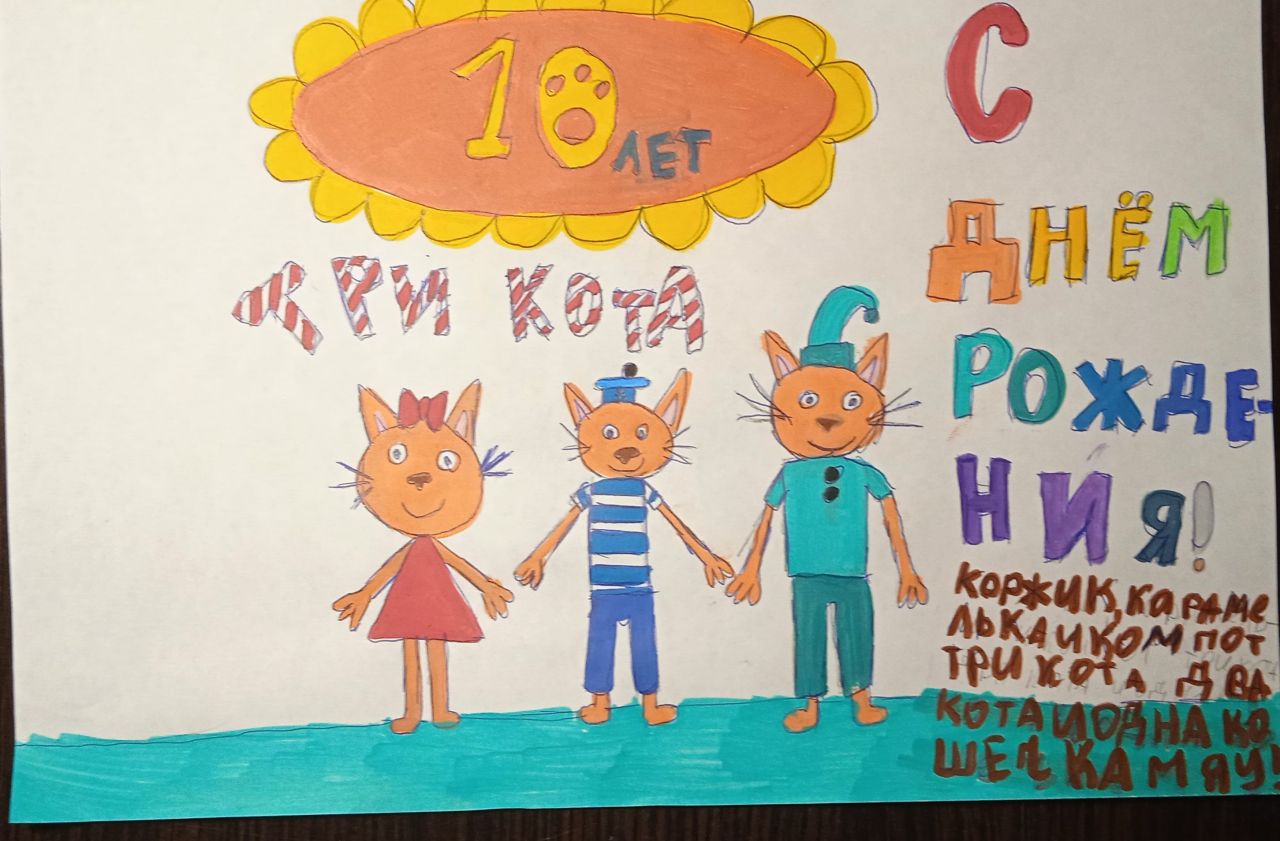 10 ЛЕТ
ТРИ КОТА
С
ДНЁМ
РОЖДЕ-
НИЯ!
КОРЖИК, КАРАМЕ
ЛЬКА И КОМПОТ
ТРИ КОТА ДВА
КОТА И ОДНА КО
ШЕЧКА МЯУ!